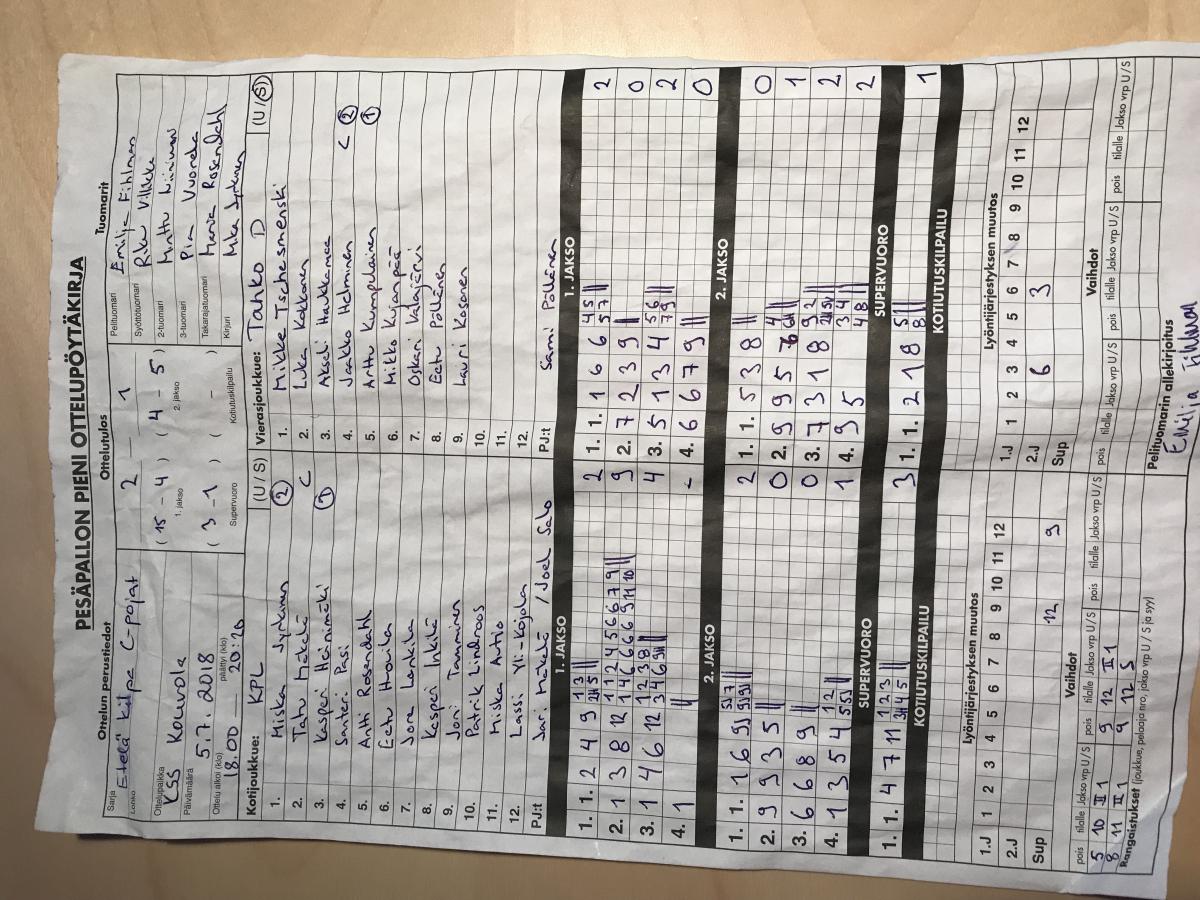 PESÄPALLON PIENI OTTELUPÖYTÄKIRJA
Ottelun perustiedot
Sarja
Etelä kilpa C-pojat
Lohko
Ottelupaikka
KSS Kouvola
Päivämäärä
5.7.2018
Ottelu alkoi (klo) päättyi (klo)
18.00 20:20
Ottelutulos
2 – 1
(15 – 4) (4 – 5)
1. jakso 2. jakso
(3 – 1) ( – )
Supervuoro Kotiutuskilpailu
Tuomarit
Pelituomari Emilja Fihlman
Syöttötuomari
2-tuomari
3-tuomari Pia Vuorela
Takarajatuomari Rosendahl
Kirjuri Mika Jyrkinen
Kotijoukkue: KPL (U / S)
1. Miska Jyrkinen 2
2. Tatu Mäkelä C
3. Kasperi Heinimäki 1
4. Santeri Pasi
5. Antti Rosendahl
6. Eetu Huovila
7. Joona Lankila
8. Kasperi Inkilä
9. Joni Tamminen
10. Patrik Lindroos
11. Miska Auhio
12. Lassi Yli-Kojola
PJ:t Jari Mäkelä / Joel Salo
Vierasjoukkue: Tahko D (U / S)
1. Mikke Tschesmenski
2. Luka Kokkonen
3. Akseli Haukkamaa
4. Jaakko Helminen C 2
5. Arttu Kumpulainen 1
6. Mikko Kujanpää
7. Oskari Valajärvi
8. Eetu Pöllänen
9. Lauri Kosonen
10.
11.
12.
PJ:t Sami Pöllänen
1. JAKSO
1. 1. 2 4 9 2
2. 1 3 8 12 9
3. 1 4 6 12 4
4. 1 -
2. JAKSO
1. 1. 1 6 9 2
2. 9 9 3 5 0
3. 6 6 8 9 0
4. 1 3 5 4 1
SUPERVUORO
1. 1. 4 7 11 3
KOTIUTUSKILPAILU
1. JAKSO
1. 1. 1 6 6 2
2. 7 2 3 9 0
3. 5 1 3 4 2
4. 6 6 7 9 0
2. JAKSO
1. 1. 5 3 8 0
2. 9 9 5 7 1
3. 7 3 1 8 2
4. 9 5 2
SUPERVUORO
1. 1. 2 1 8 1
KOTIUTUSKILPAILU
Lyöntijärjestyksen muutos
1.J 1 2 3 4 5 6 7 8 9 10 11 12
2.J
Sup 12 9
Vaihdot
pois tilalle Jakso vrp U / S pois tilalle Jakso vrp U / S pois tilalle Jakso vrp U / S
5 10 II 1 9 12 II 1
8 11 II 1 9 12 S
Rangaistukset (joukkue, pelaaja nro, jakso vrp U / S ja syy)
Lyöntijärjestyksen muutos
1.J 1 2 3 4 5 6 7 8 9 10 11 12
2.J 6 3
Sup
Vaihdot
pois tilalle Jakso vrp U / S pois tilalle Jakso vrp U / S pois tilalle Jakso vrp U / S
Pelituomarin allekirjoitus
Emilja Fihlman